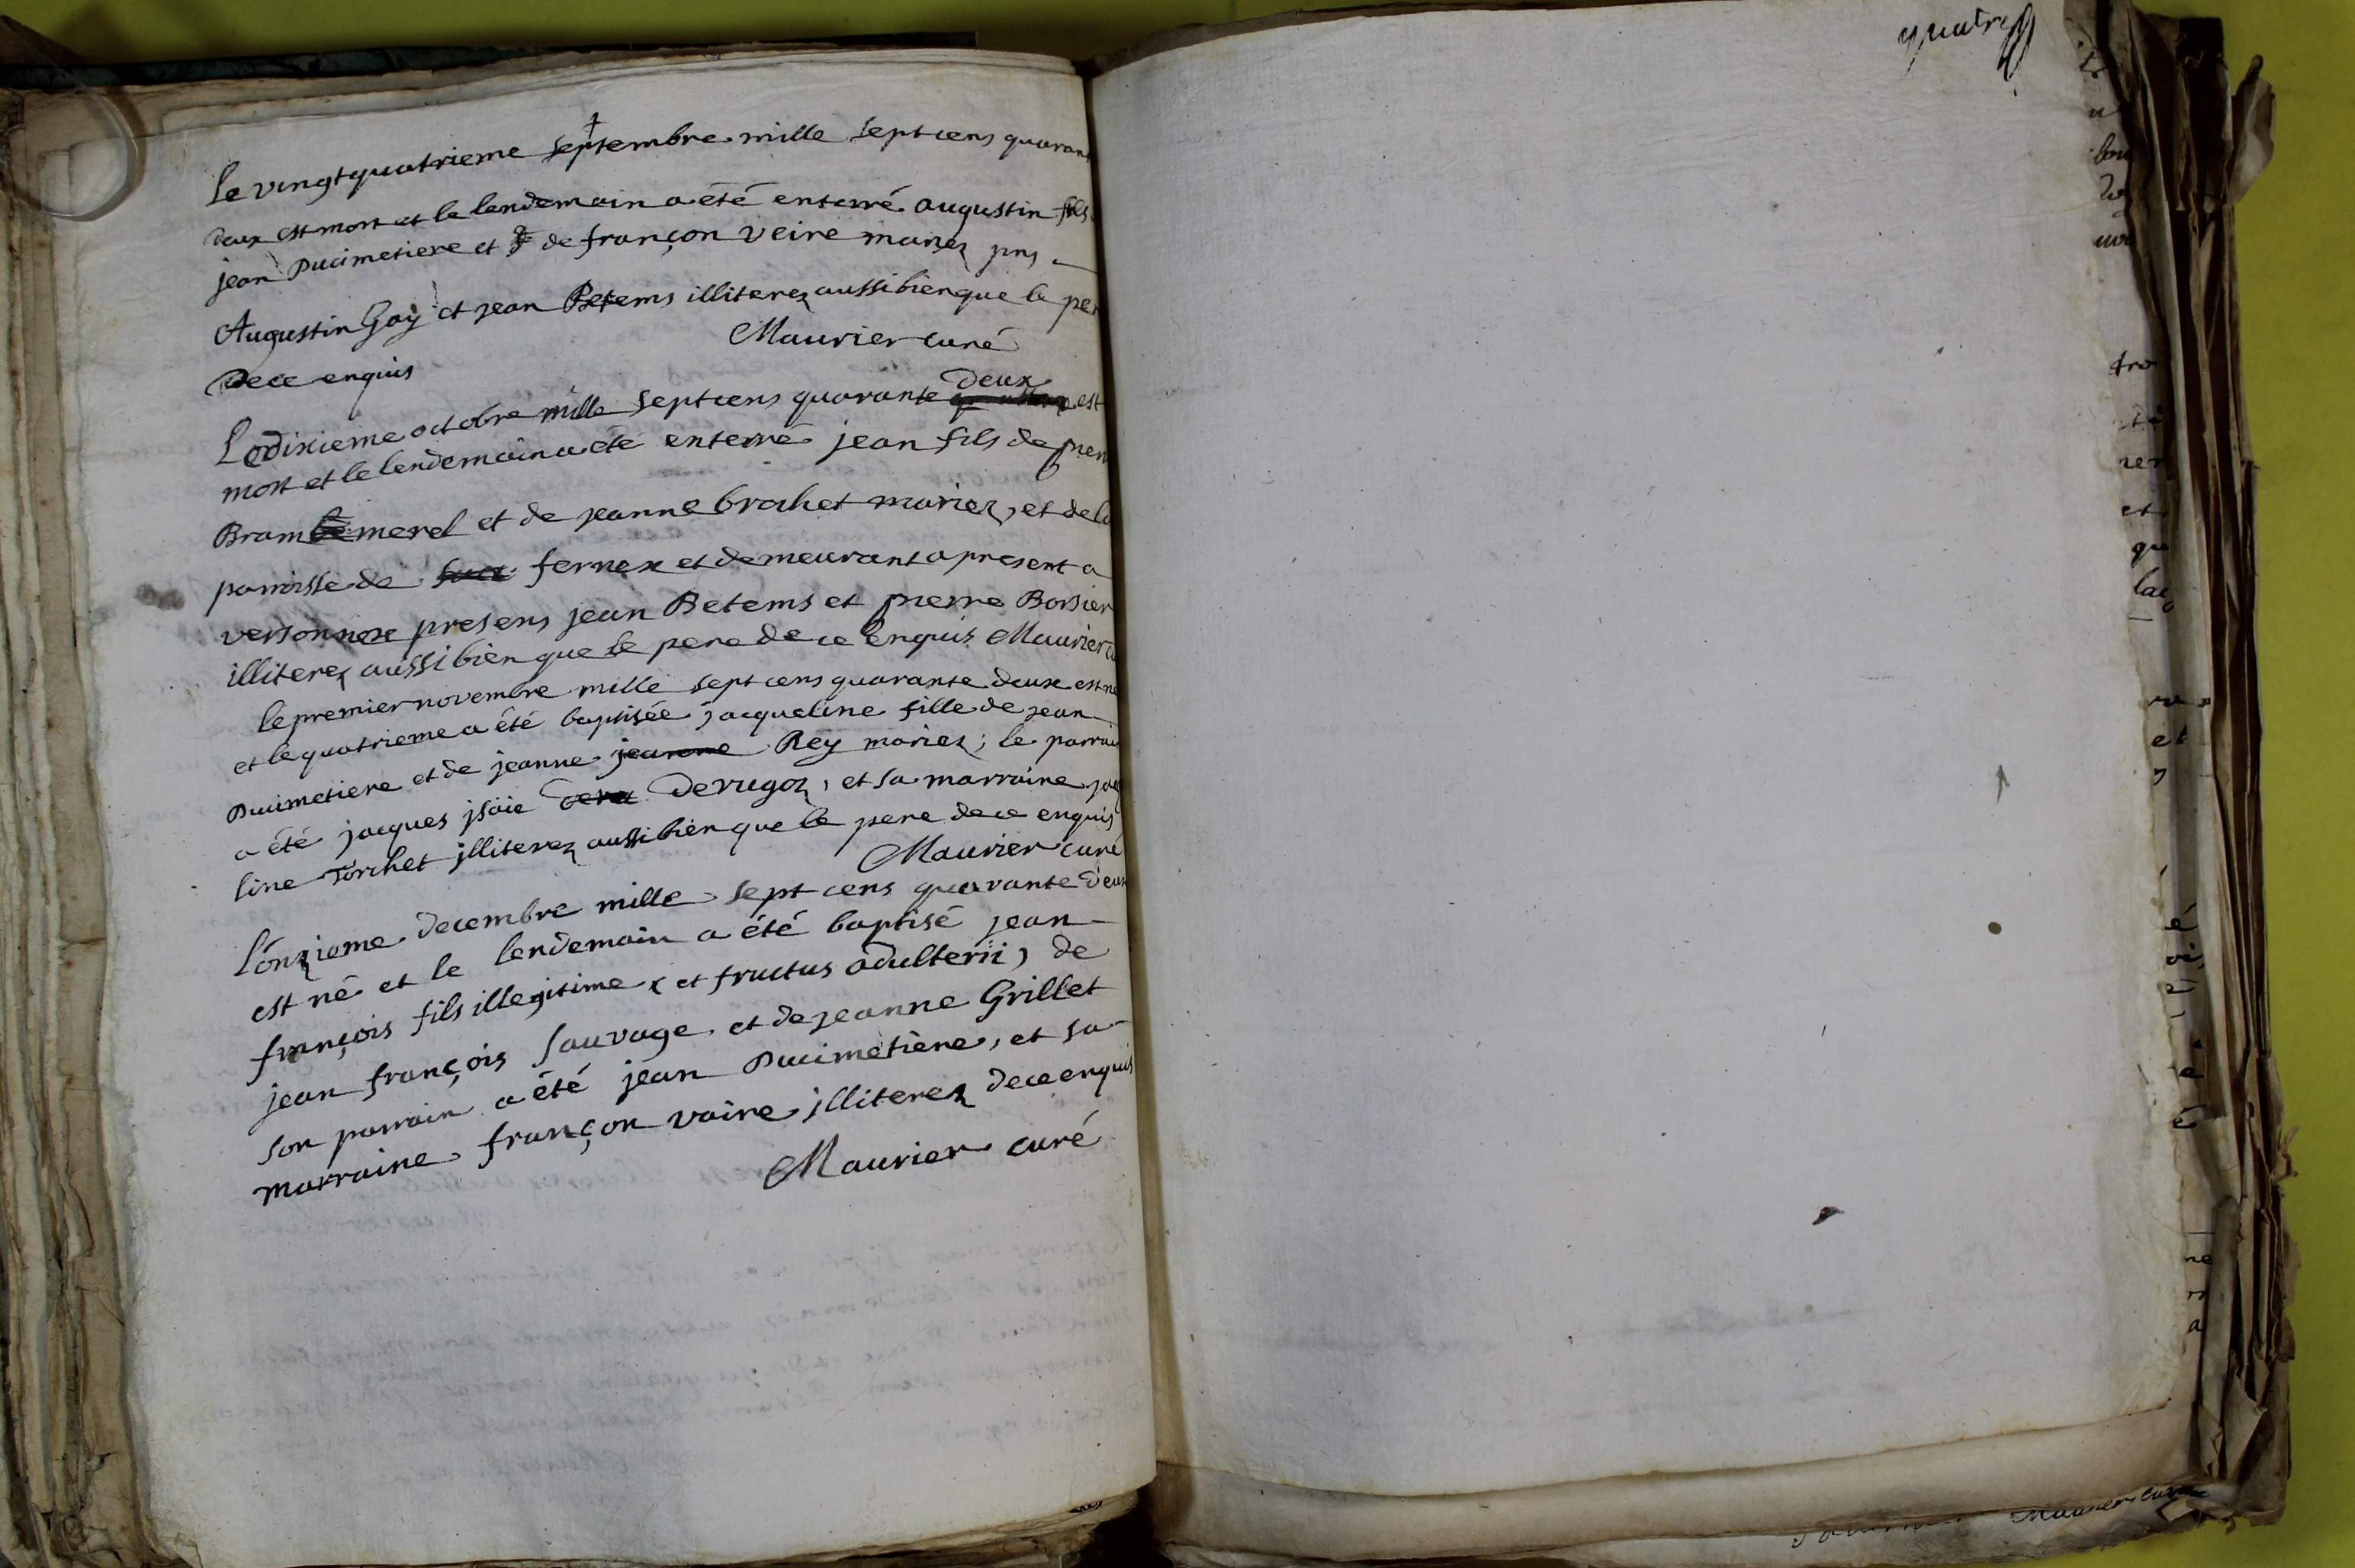 Le vingtquatrieme septembre mille septcens quarant
deux est mort et le lendemain a été enterré augustin fils
jean Ducimetiere et de françon veire mariez pns
Augustin Gay et jean Betems illiterez aussi bien que le per
de ce enquis
Maurier curé
Le dixieme octobre mille septcens quarante deux est
mort et le lendemain a été enterré jean fils de pier
Bramerel et de jeanne brochet mariez, et de la
parroisse de fernex et demeurant a present a
versonnex presens jean Betems et pierre Borsier
illiterez aussi bien que le pere de ce enquis Maurier cu
le premier novembre mille septcens quarante deux est né
et le quatrieme a été baptisée jacqueline fille de jean
Ducimetiere et de jeanne Rey mariez; le parrain
a été jacques jsaie Derugoz, et sa marraine jacq
line Torchet jlliterez aussi bien que le pere de ce enquis
Maurier curé
L'onzieme decembre mille sept cens quarante deux
est né et le lendemain a été baptisé jean
françois fils illegitime (et fructus adulterii) de
jean françois Sauvage et de jeanne Grillet
son parrain a été jean Ducimetière, et sa
marraine françon vaire jlliterez de ce enquis
Maurier curé
quatre
Maurier curé